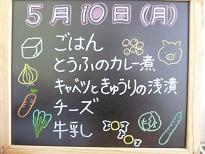 5月10日(月)
ごはん
とうふのカレー煮
キャベツときゅうりの浅漬
チーズ
牛乳